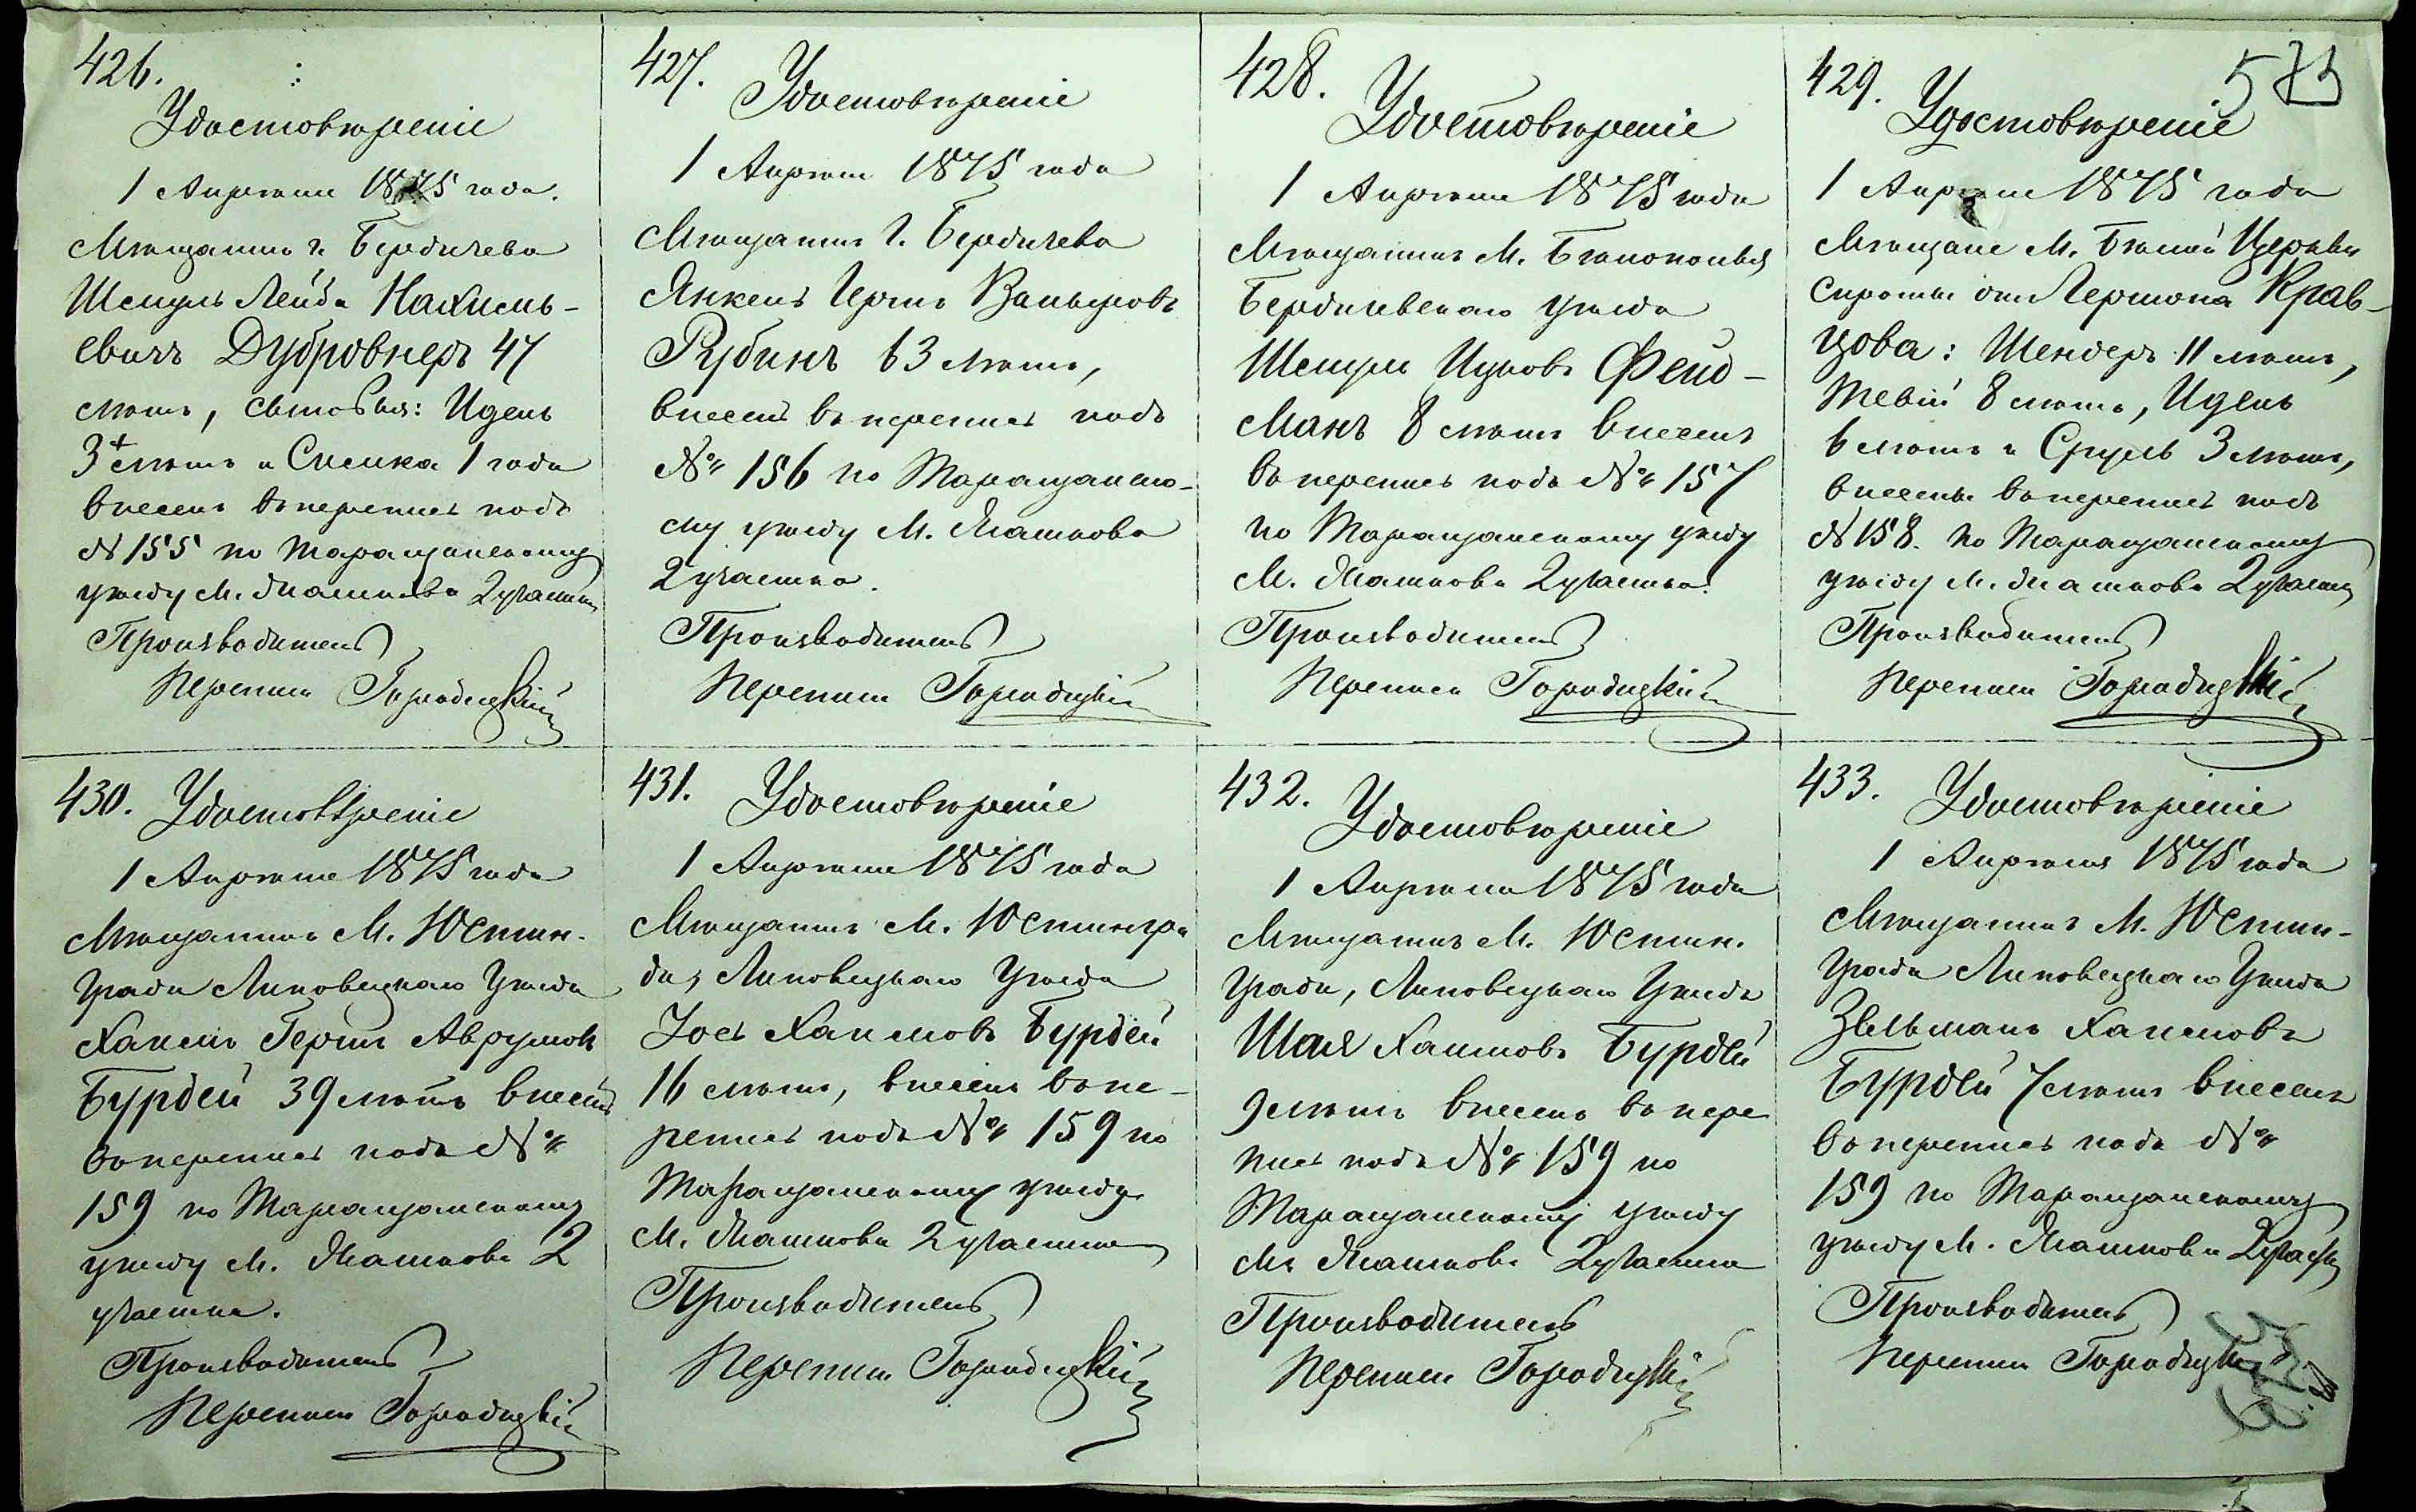 426.
Удостовѣреніе
1 Апрѣля 1875 года.
Мѣщанинъ г. Бердичева
Шмуль Лейба Нахимь-
евичъ Дубровнеръ 47
лѣтъ, сыновья: Идель
3 лѣтъ и Симха 1 года
внесенъ въ перепись подъ
№ 155 по Таращанскому
уѣзду М. Жашкова 2 участка
Производитель
переписи Городецкій
427.
Удостовѣреніе
1 Апрѣля 1875 года
Мѣщанинъ г. Бердичева
Янкель Герш Вольковъ
Рубинъ 63 лѣтъ,
внесенъ въ перепись подъ
№ 156 по Таращанско-
му уѣзду М. Жашкова
2 участка.
Производитель
переписи Городецкій
428.
Удостовѣреніе
1 Апрѣля 1875 года
Мѣщанинъ М. Бѣлополья
Бердичевскаго уѣзда
Шмуль Ицковъ Фельд-
манъ 8 лѣтъ внесенъ
въ перепись подъ № 157
по Таращанскому уѣзду
М. Жашкова 2 участка.
Производитель
переписи Городецкій
429.
573
Удостовѣреніе
1 Апрѣля 1875 года
Мѣщане М. Бѣлой Церкви
сироты Гершона Крав-
цова: Шендеръ 11 лѣтъ,
Тевій 8 лѣтъ, Идель
6 лѣтъ и Сруль 3 лѣтъ,
внесены въ перепись подъ
№ 158. по Таращанскому
уѣзду М. Жашкова 2 участка
Производитель
переписи Городецкій
430.
Удостовѣреніе
1 Апрѣля 1875 года
Мѣщанинъ М. Юстин-
града Липовецкаго уѣзда
Хаимъ Герш Аврумовъ
Бурдей 39 лѣтъ внесенъ
въ перепись подъ №
159 по Таращанскому
уѣзду М. Жашкова 2
участка.
Производитель
переписи Городецкій
431.
Удостовѣреніе
1 Апрѣля 1875 года
Мѣщанинъ М. Юстингра
да, Липовецкаго уѣзда
Іось Хаимовъ Бурдей
16 лѣтъ, внесенъ въ пе-
репись подъ № 159 по
Таращанскому уѣзду
М. Жашкова 2 участка
Производитель
переписи Городецкій
432.
Удостовѣреніе
1 Апрѣля 1875 года
Мѣщанинъ М. Юстин-
града, Липовецкаго уѣзда
Шая Хаимовъ Бурдей
9 лѣтъ внесенъ въ пере
пись подъ № 159 по
Таращанскому уѣзду
М. Жашкова 2 участка
Производитель
переписи Городецкій
433.
Удостовѣреніе
1 Апрѣля 1875 года
Мѣщанинъ М. Юстин-
града Липовецкаго уѣзда
Зельманъ Хаимовъ
Бурдей 7 лѣтъ внесенъ
въ перепись подъ №
159 по Таращанскому
уѣзду М. Жашкова 2 участка
Производитель
переписи Городецкій